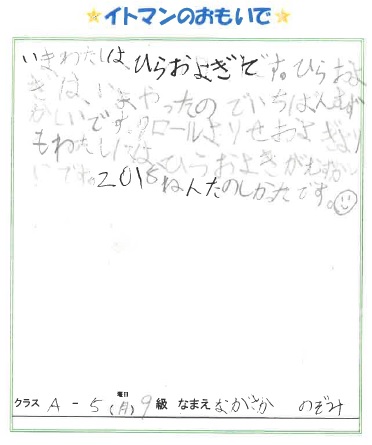 イトマンのおもいで
いまわたしは ひらおよぎです。ひらおよ
ぎは、いまやったのでいちばんむず
かしいです。クロールよりせおよぎより
もわたしには、ひらおよぎがむずかし
いです。2018ねんたのしかったです。
クラス A - 5 曜日(月) 9級 なまえ ながさか のぞみ